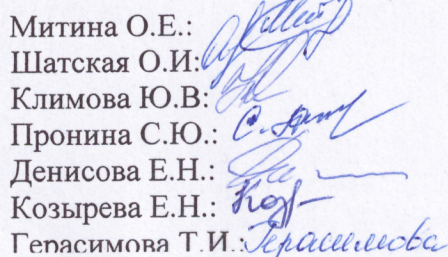 Митина О.Е.:
Шатская О.И:
Климова Ю.В:
Пронина С.Ю.:
Денисова Е.Н.:
Козырева Е.Н.:
Герасимова Т.И.: Герасимова